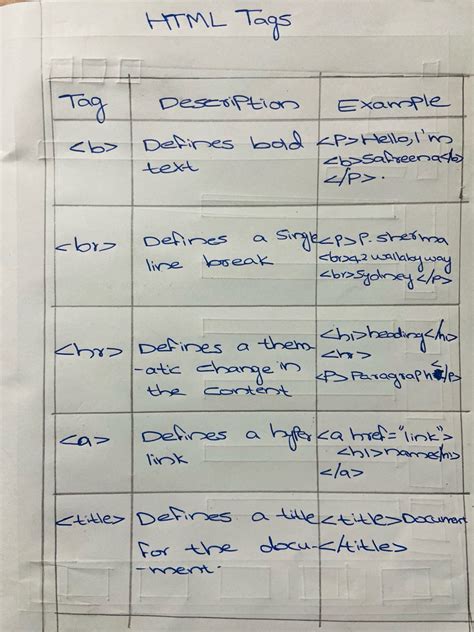 HTML Tags
Tag Description Example
<b> Defines bold <P>Hello, I'm
text <b>Safreena</b>
</P>.
<br> Defines a single <P>P. sherma
line break <br>42 wallaby way
<br>Sydney </P>
<hr> Defines a them- <h1>heading</h1>
-atic change in <hr>
the content <P>Paragraph</P>
<a> Defines a hyper <a href="link">
link <h1>names</h1>
</a>
<title> Defines a title <title>Document
for the docu- </title>
-ment.